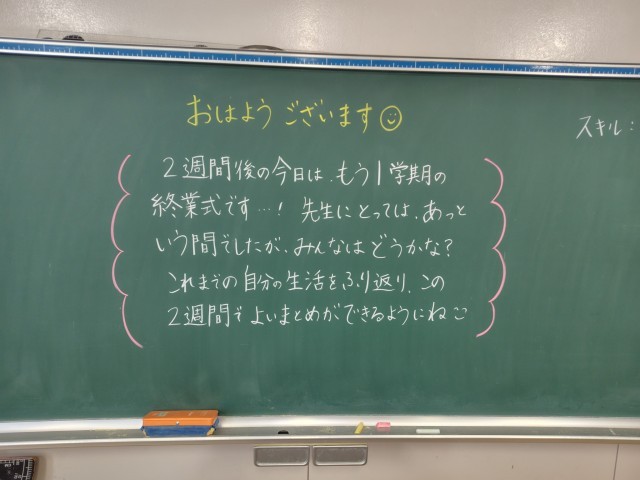 おはようございます
スキル:
2週間後の今日は、もう1学期の
終業式です…! 先生にとっては、あっと
いう間でしたが、みんなはどうかな?
これまでの自分の生活をふり返り、この
2週間でよいまとめができるようにね